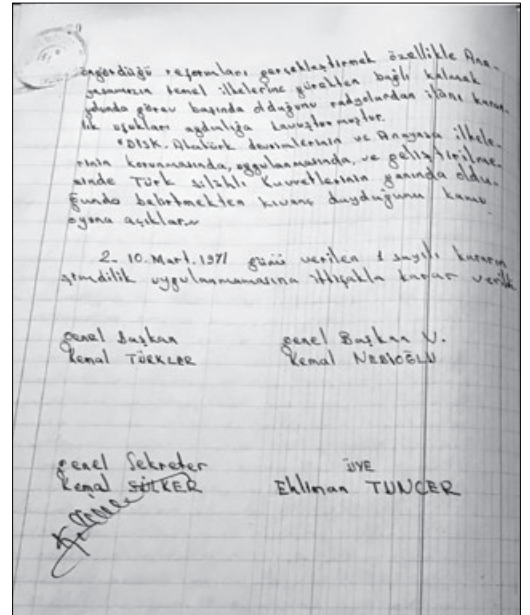 öngördüğü reformları gerçekleştirmek özellikle Ana-
yasamızın temel ilkelerine yürekten bağlı kalmak
yolunda görev başında olduğunu radyolardan ilânı karan-
lık ufukları aydınlığa kavuşturmuştur.
"DİSK. Atatürk devrimlerinin ve Anayasa ilkele-
rinin korunmasında, uygulanmasında, ve geliştirilme-
sinde Türk silâhlı Kuvvetlerinin yanında oldu-
ğunda belirtmekten kıvanç duyduğunu kamu
oyuna açıklar.~
2- 10.Mart.1971 günü verilen 1 sayılı kararın
şimdilik uygulanmamasına ittifakla karar verildi
genel Başkan
Kemal TÜRKLER
genel Başkan V.
Kemal NEBİOĞLU
genel Sekreter
Kemal SÜLKER
ÜYE
Ehliman TUNCER